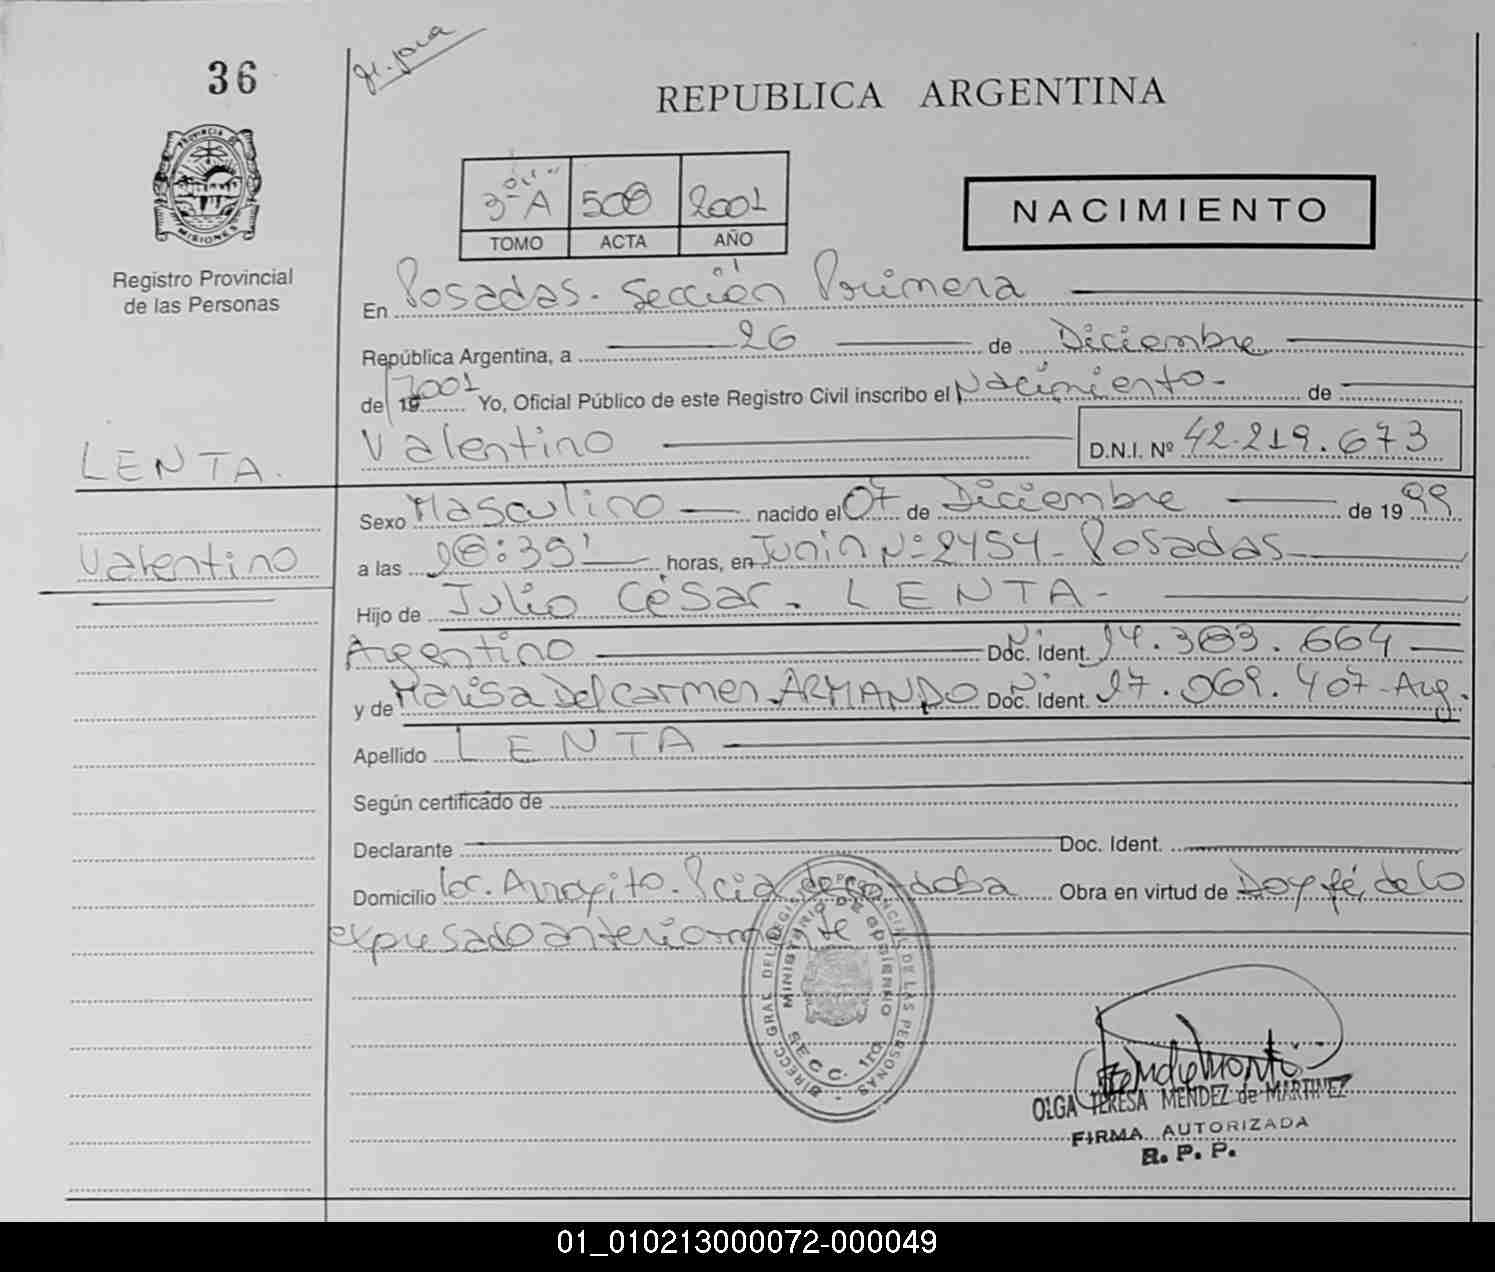 36
REPUBLICA ARGENTINA
PROVINCIA DE
MISIONES
Registro Provincial
de las Personas
3ª A 508 2001
TOMO ACTA AÑO
NACIMIENTO
En Posadas. Sección Primera
República Argentina, a 26 de Diciembre
de 19 2001 Yo, Oficial Público de este Registro Civil inscribo el Nacimiento - de
Valentino D.N.I. Nº 42.219.673
LENTA.
Sexo Masculino nacido el 07 de Diciembre de 1999
Valentino
a las horas, en Junin Nº 2454 - Posadas
Hijo de Julio César. LENTA -
Argentino Doc. Ident. Nº 14.383.664
y de Marisa Del Carmen ARMANDO Doc. Ident. Nº 17.069.407 - Arg.
Apellido LENTA
Según certificado de
Declarante Doc. Ident.
Domicilio loc. Arroyito. Pcia de Cordoba Obra en virtud de Doy fé, de lo
expresado anteriormente
DIRECC. GRAL DEL REGISTRO PROVINCIAL DE LAS PERSONAS
MINISTERIO DE GOBIERNO
SECC. 1ra.
OLGA TERESA MENDEZ de MARTINEZ
FIRMA AUTORIZADA
R. P. P.
01_010213000072-000049